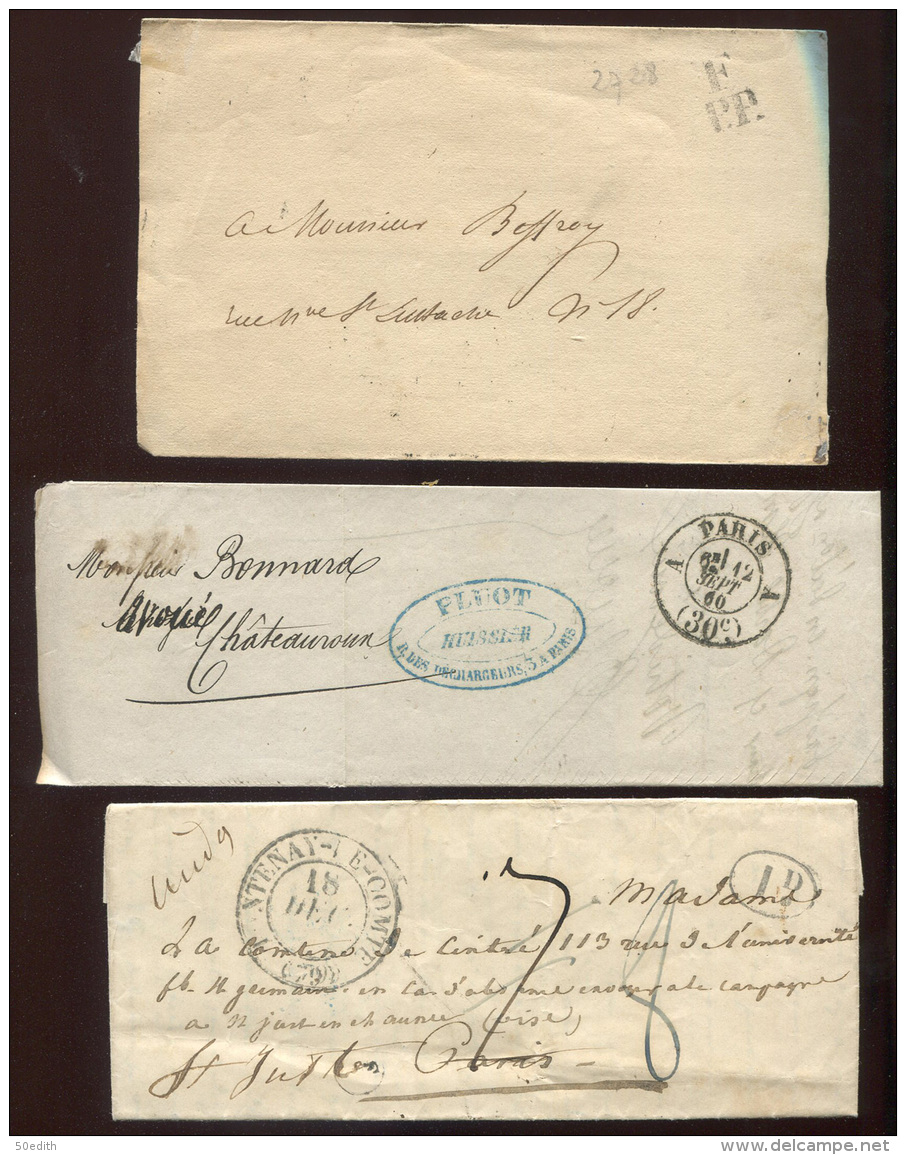 27 28
F.
P.P.
A Monsieur Beffroy
rue Nve St Eustache No 18.
Monsieur Bonnard
Avoué
Châteauroux
PLUOT
HUISSIER
R. DES DÉCHARGEURS, 3 A PARIS
A PARIS A
12
SEPT
60
(30c)
NTENAY-LE-COMTE
18
DEC
(79)
1D
Madame
La Comtesse de 113 rue de l'université
fb St germain. en cas d'absence envoyer a la campagne
a St just en chaussée (oise)
St Just Paris
50edith
delcampe.net